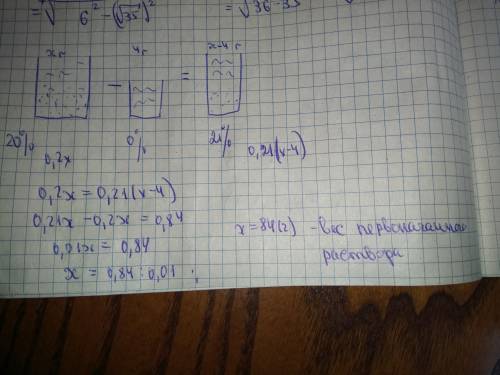 = √6² - (√35)² = √36-35
x г 4 г x-4 г
- =
20% 0% 21%
0,2x 0,21(x-4)
0,2x = 0,21(x-4)
0,21x - 0,2x = 0,84
0,01x = 0,84
x = 0,84 : 0,01 ;
x = 84(г) - вес первоначальной
раствора